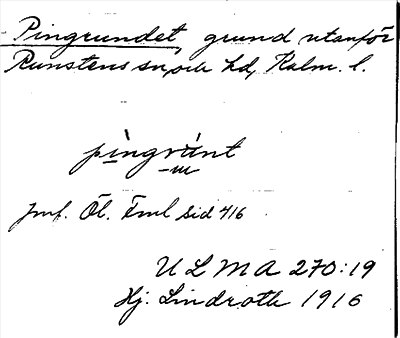 Pingrundet, grund utanför
Runstens sn, och hd, Kalm. l.
pìngrúnt
-u
Jmf. Öl. Fml sid 416
ULMA 270:19
Hj. Lindroth 1916